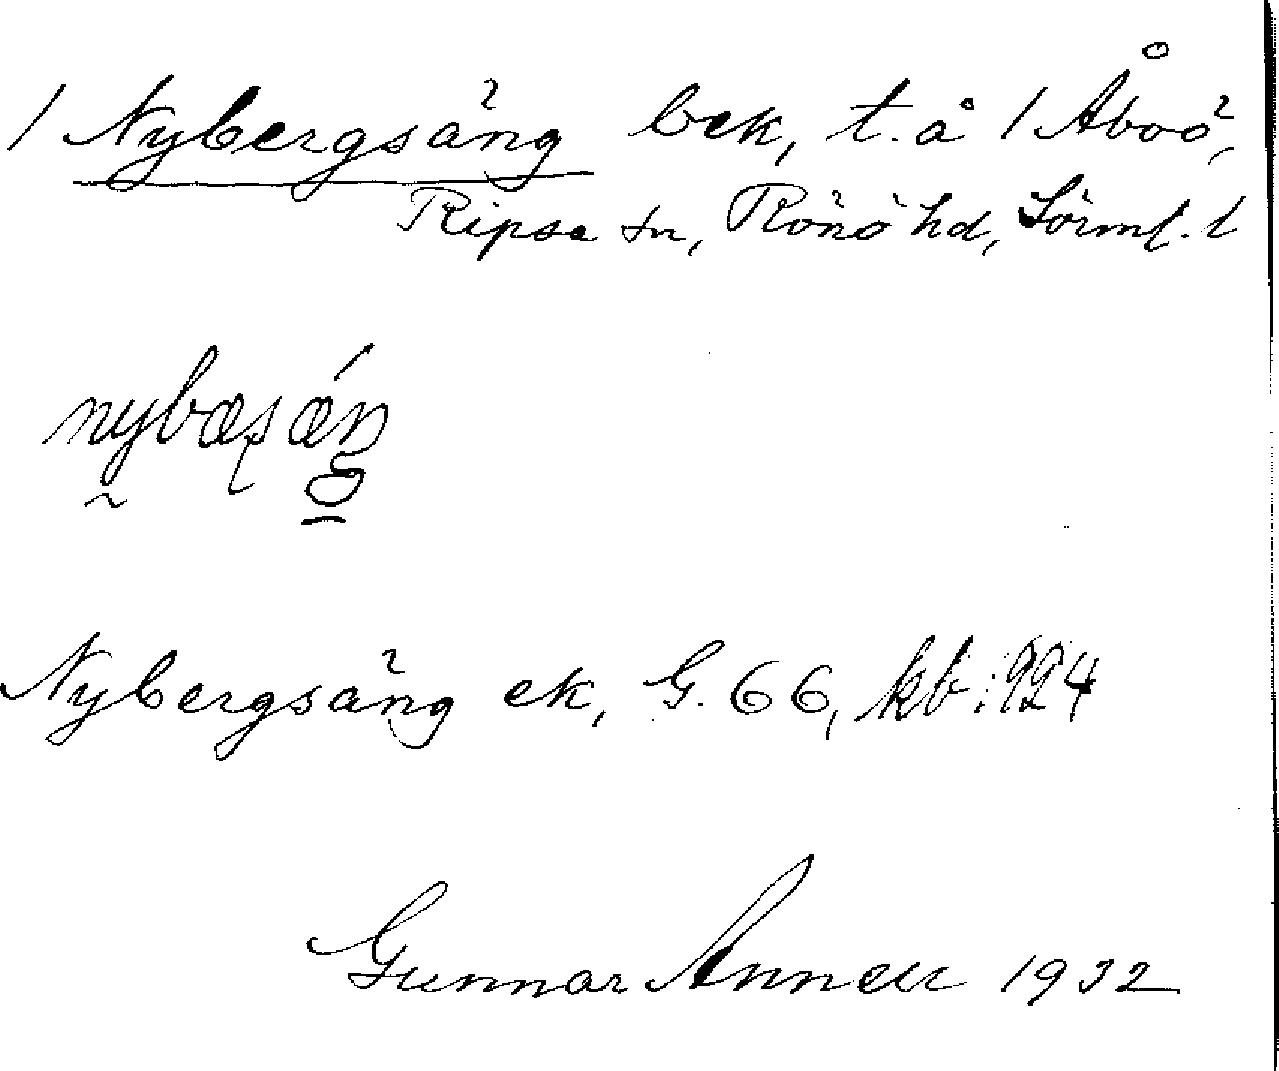 / Nybergsäng bek, t. å / Åboö,
Ripsa sn, Rönö hd, Sörml. l
nybæṣæŋ
Nybergsäng ek, G. 66, kb: 924
Gunnar Annell 1932